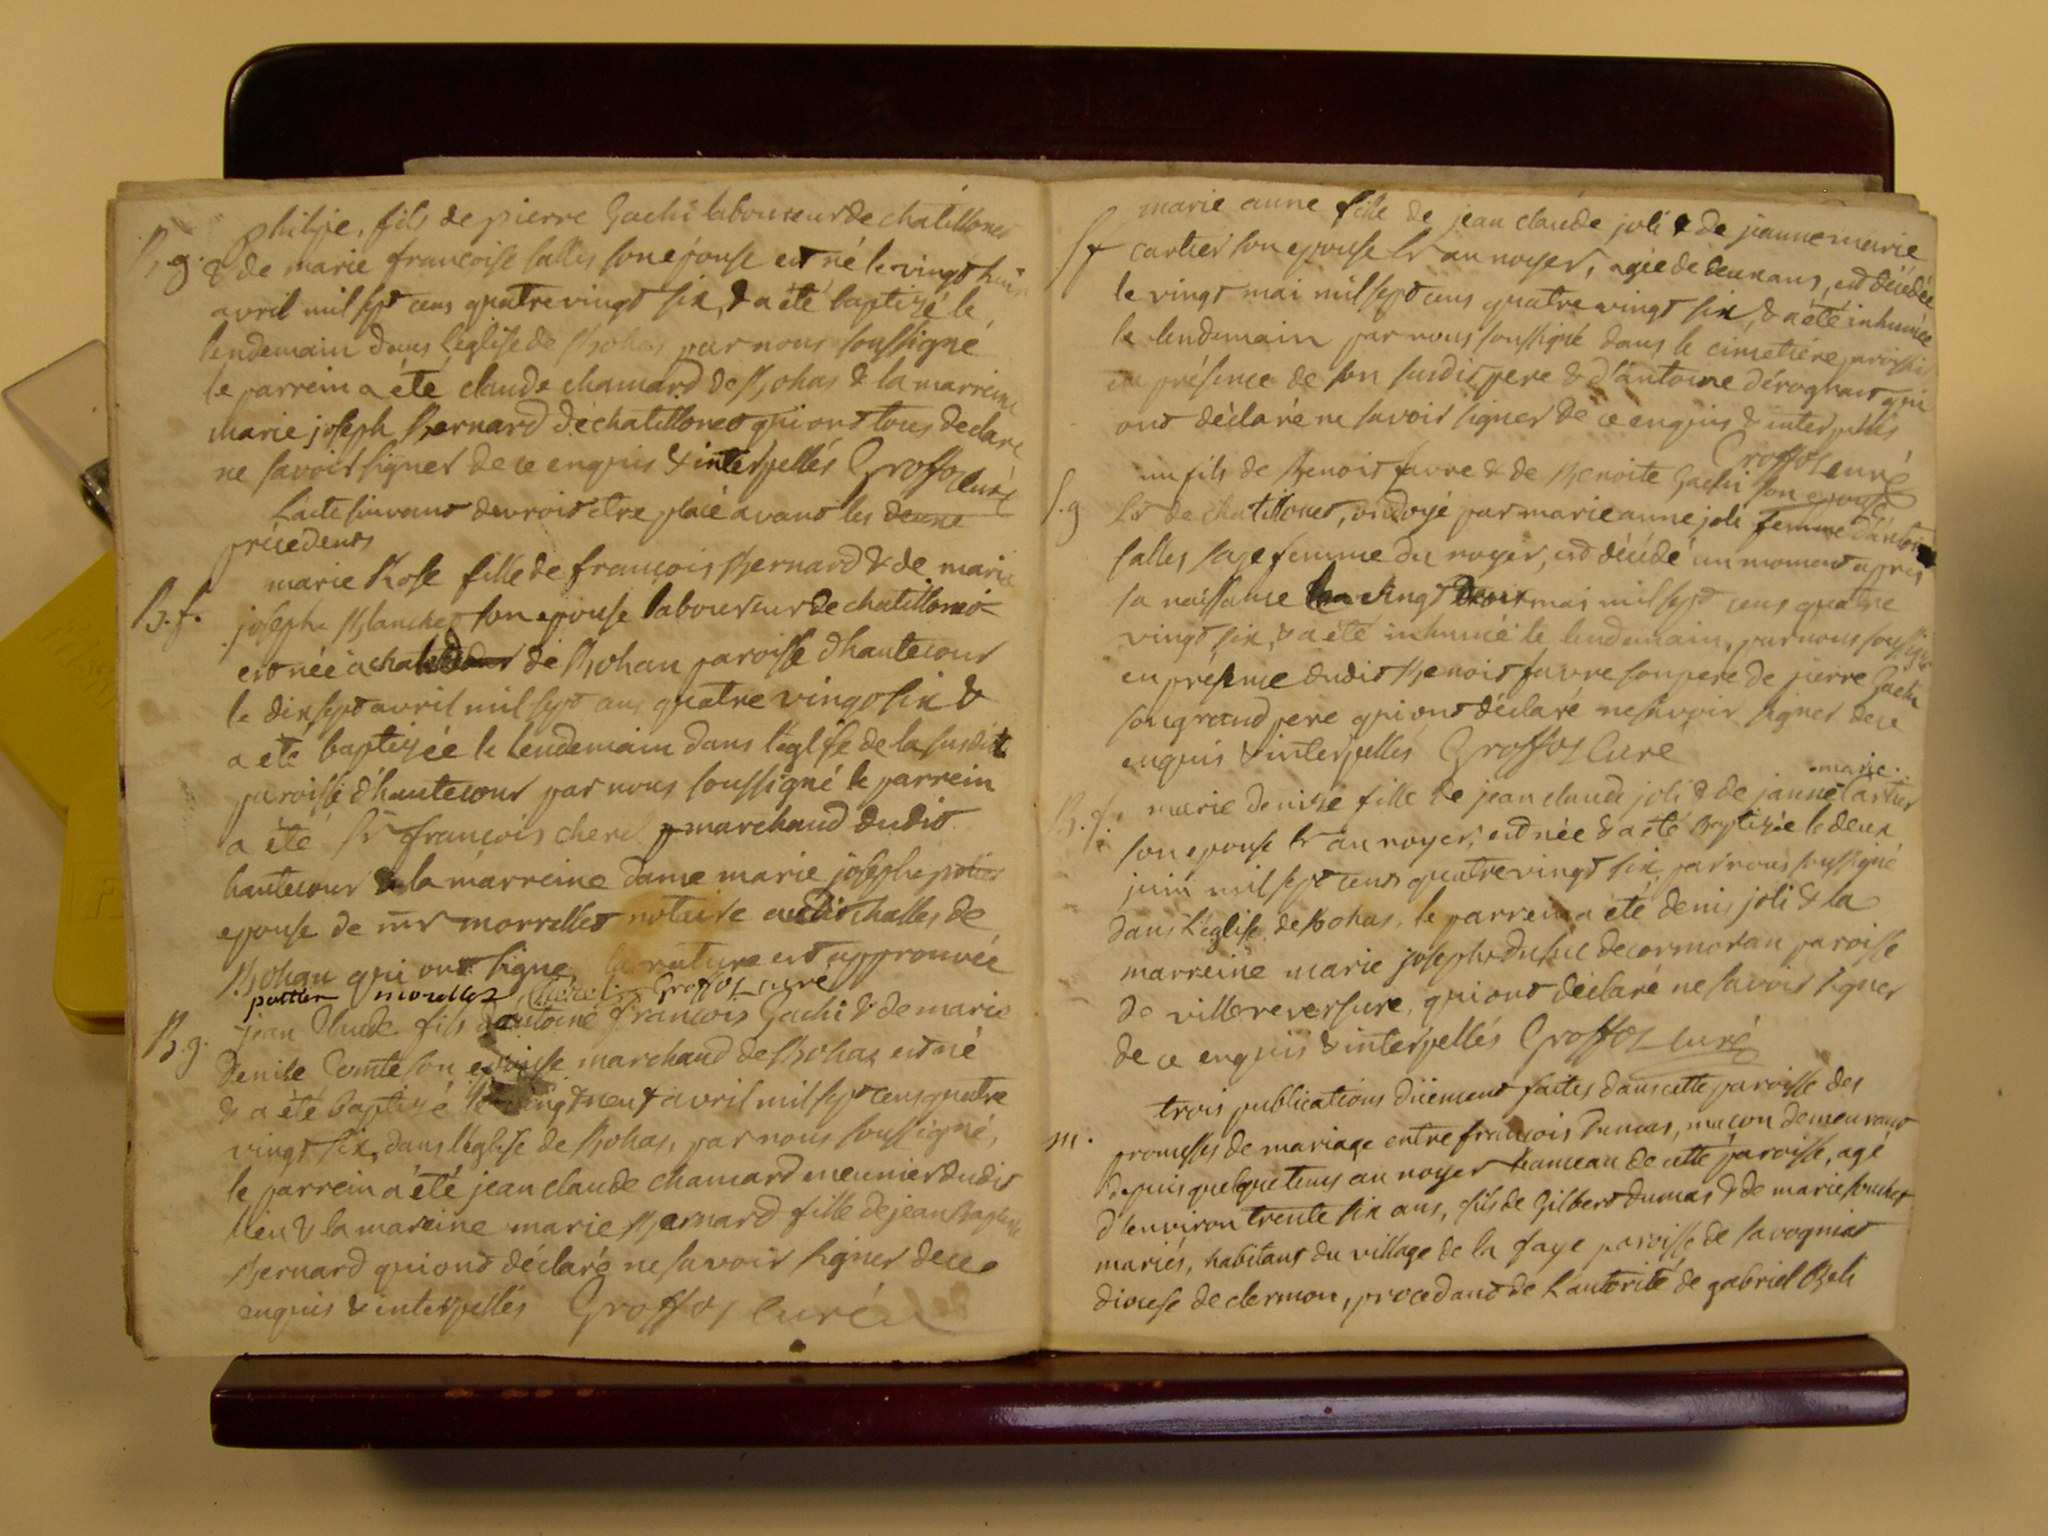 B.g. philipe, fils de pierre Gachi laboureur de chatillonet
& de marie francoise salles son épouse est né le vingt huit
avril mil sept cens quatre vingt six, & a été baptizé le
lendemain dans l'église de Bohas par nous soussigné
le parrein a été claude chamard de Bohas & la marreine
marie joseph Bernard de chatillonet qui ont tous declaré
ne savoir signer de ce enquis & interpellés Groffoz curé
L'acte suivant devroit etre placé avant les deux
précédents
marie Rose fille de françois Bernard & de marie
B.f. josephe Blanchet son epouse laboureur de chatillonet
est née à de Bohan paroisse d'hautecour
le dix sept avril mil sept cens quatre vingt six &
a été baptizée le lendemain dans l'église de la susdite
paroisse d'hautecour par nous soussigné le parrein
a été sr francois cherel marchand dudit
hautecour & la marreine dame marie josephe potier
epouse de mr morrellet notaire audit halles de
Bohan qui ont signé la rature est approuvée
pottier morellet cherel Groffoz curé
B.g. jean Claude fils d'antoine françois Gachi & de marie
denise Comte son epouse marchand de Bohas est né
& a été baptizé le vingt neuf avril mil sept cens quatre
vingt six, dans l'église de Bohas, par nous soussigné,
le parrein a été jean claude chamard meunier dudit
lieu & la mareine marie Bernard fille de jean Baptiste
Bernard qui ont déclaré ne savoir signer de ce
enquis & interpellés Groffoz curé
marie anne fille de jean claude joli & de jeanne marie
Sf cartier son epouse lr au noyer, agée de deux ans, est décédée
le vingt mai mil sept cens quatre vingt six, & a été inhumée
le lendemain par nous soussigné dans le cimetière paroissial
en présence de son susdit pere & d'antoine dérognat qui
ont déclaré ne savoir signer de ce enquis & interpellés
Groffoz curé
un fils de Benoit favre & de Benoite Gachi son epouse
S.g lr de chatillonet, ondoyé par marie anne joli femme d'antoine
salles sage femme du noyer, est décédé un moment apres
sa naissance le vingt mai mil sept cens quatre
vingt six, & a été inhumé le lendemain, par nous soussigné
en présence dudit Benoit favre son pere de pierre Gachi
son grand pere qui ont déclaré ne savoir signer de ce
enquis & interpellés Groffoz Curé
marie
B.f. marie denise fille de jean claude joli & de janne Cartier
son epouse lr au noyer, est née & a été Baptizée le deux
juin mil sept cens quatre vingt six par nous soussigné
dans l'église de Bohas, le parrein a été denis joli & la
marreine marie josephe dusuc de cormoran paroisse
de villereversure, qui ont déclaré ne savoir signer
de ce enquis & interpellés Groffoz curé
trois publications düement faites dans cette paroisse des
m. promesses de mariage entre françois Dumas, maçon demeurant
depuis quelque tems au noyer hameau de cette paroisse, agé
d'environ trente six ans, fils de Gilbert dumas & de marie
mariés, habitans du village de la faye paroisse de savogniat
diocese de clermon, procedant de L'autorité de gabriel